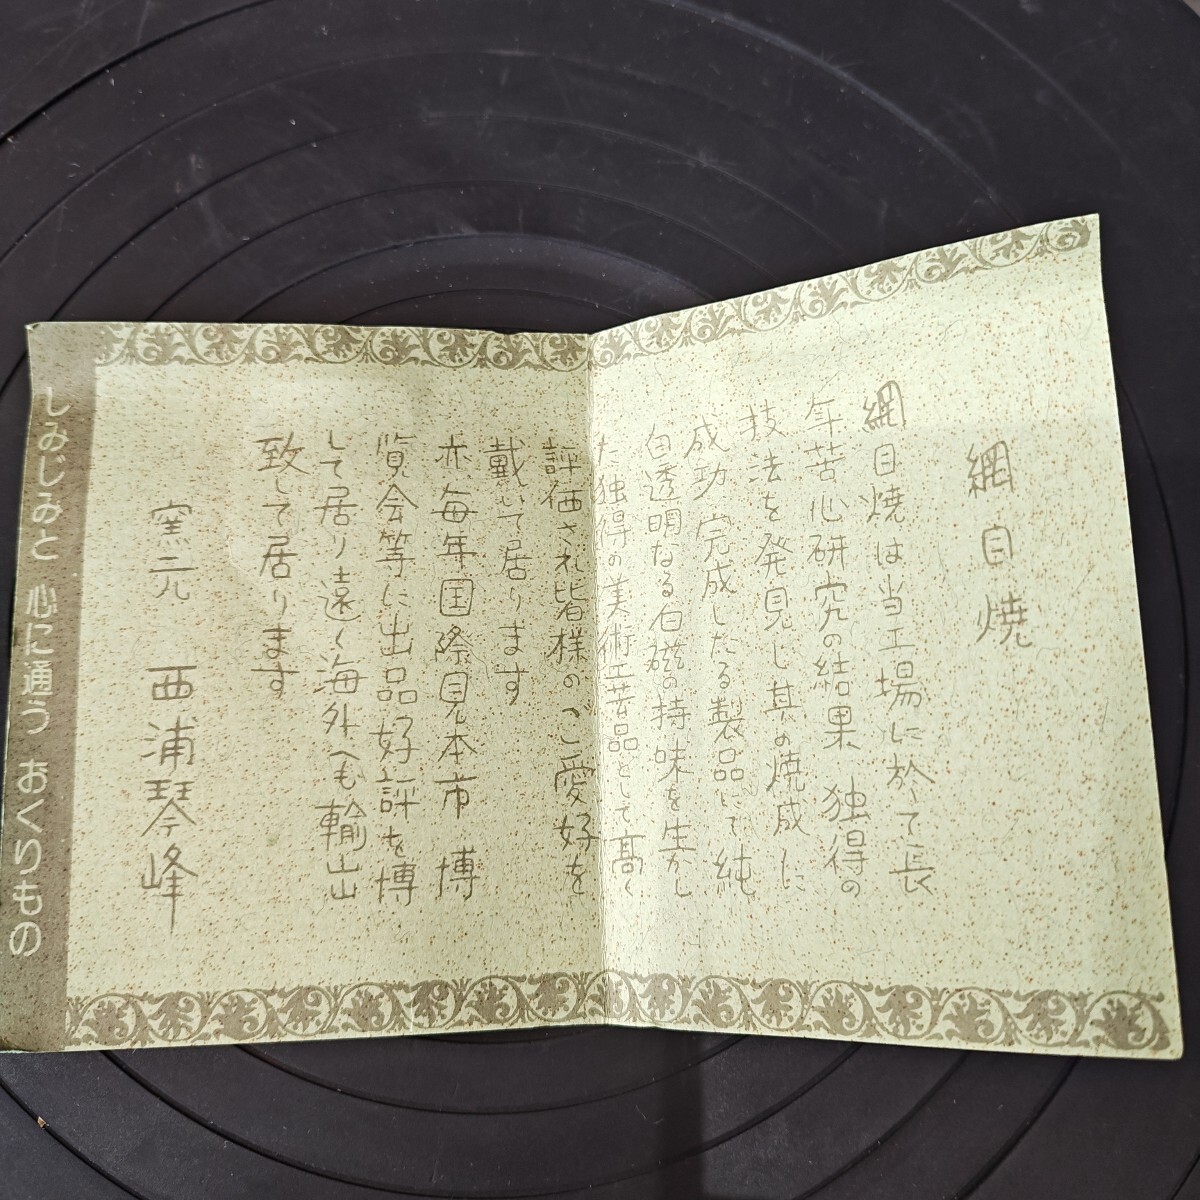 網目焼
網目焼は当工場に於て長
年苦心研究の結果 独得の
技法を発見し其の焼成に
成功 完成したる製品にて 純
白透明なる白磁の特味を生かし
た独得の美術工芸品として高く
評価され皆様のご愛好を
戴いて居ります
亦毎年国際見本市 博
覧会等に出品好評を博
して居り遠く海外へも輸出
致して居ります
窯元 西浦琴峰
しみじみと 心に通う おくりもの